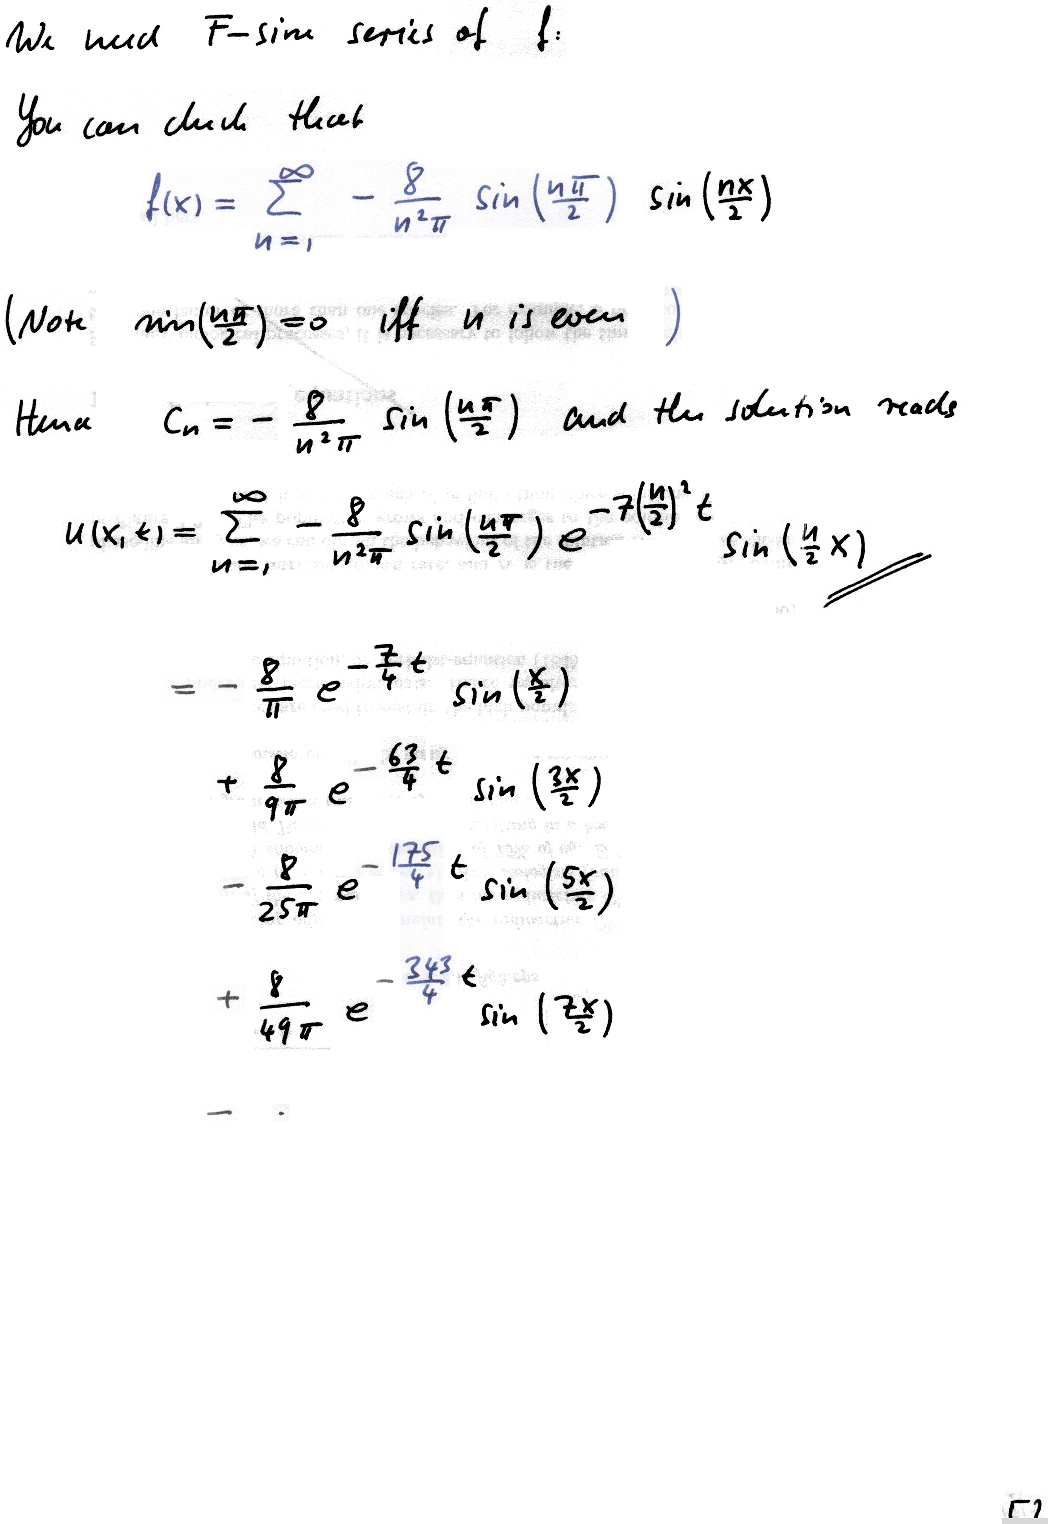 We need F-sine series of f:
You can check that
f(x) = ∑_{n=1}^{∞} - 8/(n²π) sin(nπ/2) sin(nx/2)
(Note sin(nπ/2) = 0 iff n is even)
Hence Cn = - 8/(n²π) sin(nπ/2) and the solution reads
u(x,t) = ∑_{n=1}^{∞} - 8/(n²π) sin(nπ/2) e^{-7(n/2)² t} sin(n/2 x)
= - 8/π e^{-7/4 t} sin(x/2)
+ 8/(9π) e^{-63/4 t} sin(3x/2)
- 8/(25π) e^{-175/4 t} sin(5x/2)
+ 8/(49π) e^{-343/4 t} sin(7x/2)
- .